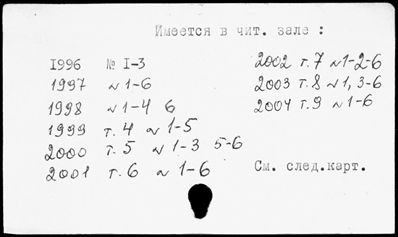 Имеется в чит. зале :
1996 № 1-3
1997 № 1-6
1998 № 1-4 6
1999 т. 4 № 1-5
2000 т. 5 № 1-3 5-6
2001 т. 6 № 1-6
2002 т. 7 № 1-2-6
2003 т. 8 № 1, 3-6
2004 т. 9 № 1-6
См. след.карт.